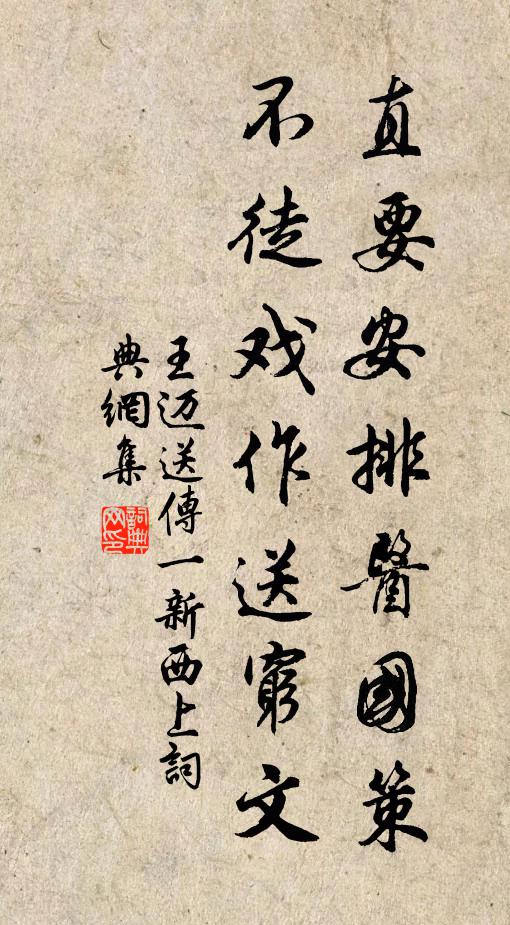 直要安排醫國策
不徒戏作送窮文
王迈送傅一新西上詞
典網集
詞典网印